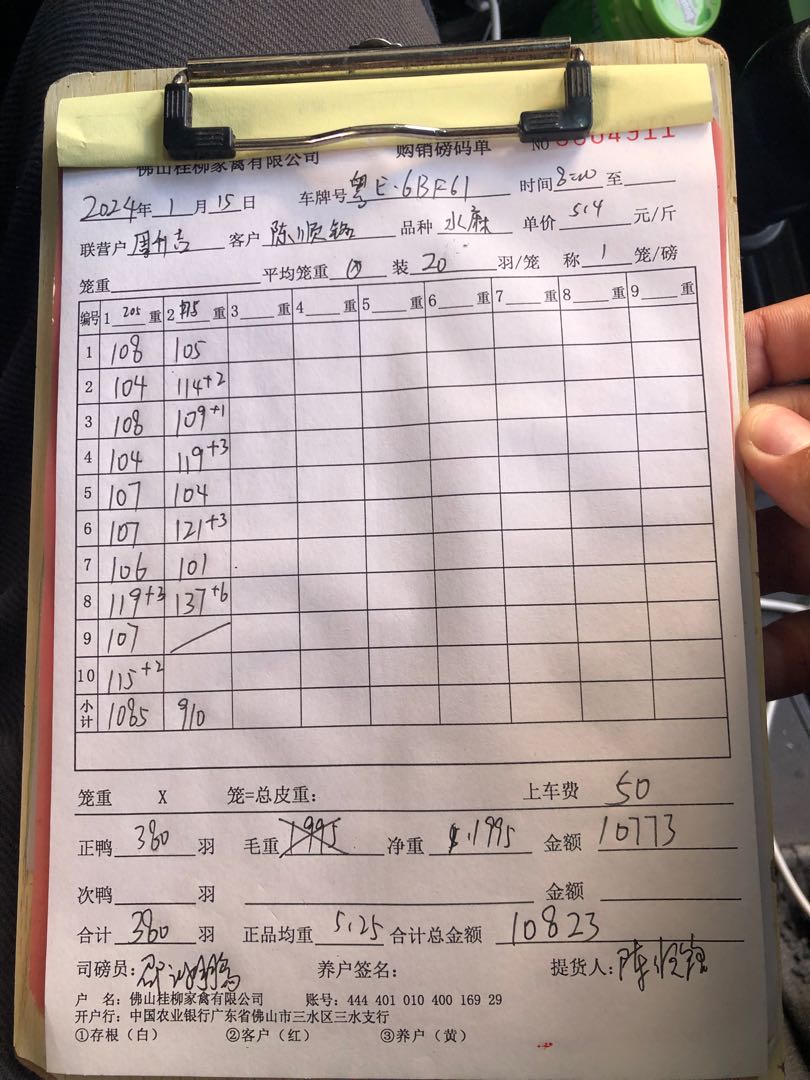 佛山桂柳家禽有限公司 购销磅码单 NO 0004911
2024年 1 月 15 日 车牌号 粤E·6BF61 时间 8:00 至
联营户 客户 陈顺铭 品种 水麻 单价 5.4 元/斤
笼重 平均笼重 装 20 羽/笼 称 1 笼/磅
编号 1 205 重 2 175 重 3 重 4 重 5 重 6 重 7 重 8 重 9 重
1 108 105
2 104 114+2
3 108 109+1
4 104 119+3
5 107 104
6 107 121+3
7 106 101
8 119+3 137+6
9 107
10 115+2
小计 1085 910
笼重 X 笼=总皮重: 上车费 50
正鸭 380 羽 毛重 1995 净重 1995 金额 10773
次鸭 羽 金额
合计 380 羽 正品均重 5.25 合计总金额 10823
司磅员: 养户签名: 提货人: 陈顺铭
户 名: 佛山桂柳家禽有限公司 账号: 444 401 010 400 169 29
开户行: 中国农业银行广东省佛山市三水区三水支行
①存根(白) ②客户(红) ③养户(黄)